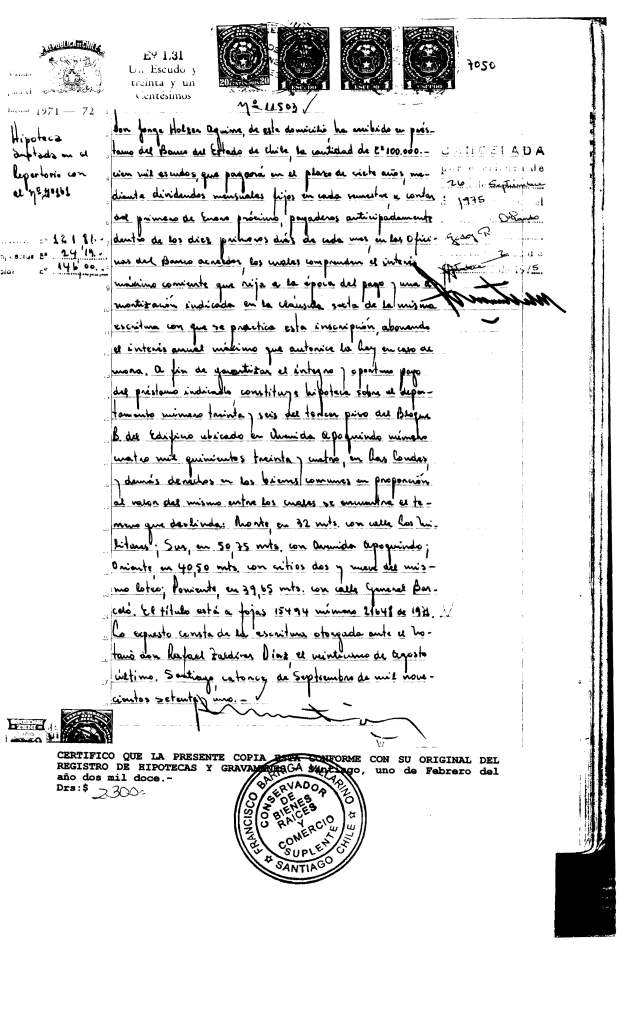 Eº 1.31
Un Escudo y
treinta y un
Centésimos
7050
1971 — 72
Nº 11503
Hipoteca
anotada en el
Repertorio con
el Nº
121.81.-
24.19.-
Eº 146.00.-
Don Jorge Holzer Aguirre, de este domicilio ha recibido en prés-
tamo del Banco del Estado de Chile, la cantidad de Eº 100.000.-
cien mil escudos, que pagará en el plazo de siete años, me-
diante dividendos mensuales fijos en cada semestre a contar
del primero de Enero próximo, pagaderos anticipadamente
dentro de los diez primeros días de cada mes en las Ofici-
nas del Banco acreedor, los cuales comprenden el interés
máximo corriente que rija a la época del pago y una a-
mortización indicada en la cláusula sexta de la misma
escritura con que se practica esta inscripción, abonando
el interés anual máximo que autorice la Ley en caso de
mora. A fin de garantizar el íntegro y oportuno pago
del préstamo indicado constituye hipoteca sobre el depar-
tamento número treinta y seis del tercer piso del Bloque
B. del Edificio ubicado en Avenida Apoquindo número
cuatro mil quinientos treinta y cuatro, en Las Condes,
y demás derechos en los bienes comunes en proporción
al valor del mismo entre los cuales se encuentra el te-
rreno que deslinda: Norte, en 32 mts. con calle Los Mi-
litares; Sur, en 50,75 mts. con Avenida Apoquindo;
Oriente, en 40,50 mts. con sitios dos y nueve del mis-
mo loteo; Poniente, en 39,65 mts. con calle General Bar-
celó. El título está a fojas 15494 número 21648 de 1971.
Lo expuesto consta de la escritura otorgada ante el No-
tario don Rafael Zaldívar Díaz, el veintiuno de Agosto
último. Santiago, catorce de Septiembre de mil nove-
cientos setenta y uno.-
CANCELADA
26 Septiembre
1975
CERTIFICO QUE LA PRESENTE COPIA ESTA CONFORME CON SU ORIGINAL DEL
REGISTRO DE HIPOTECAS Y GRAVAMENES Santiago, uno de Febrero del
año dos mil doce.-
Drs:$ 2300.-
FRANCISCO BARRIGA
CONSERVADOR
DE
BIENES
RAICES
Y
COMERCIO
SUPLENTE
SANTIAGO CHILE